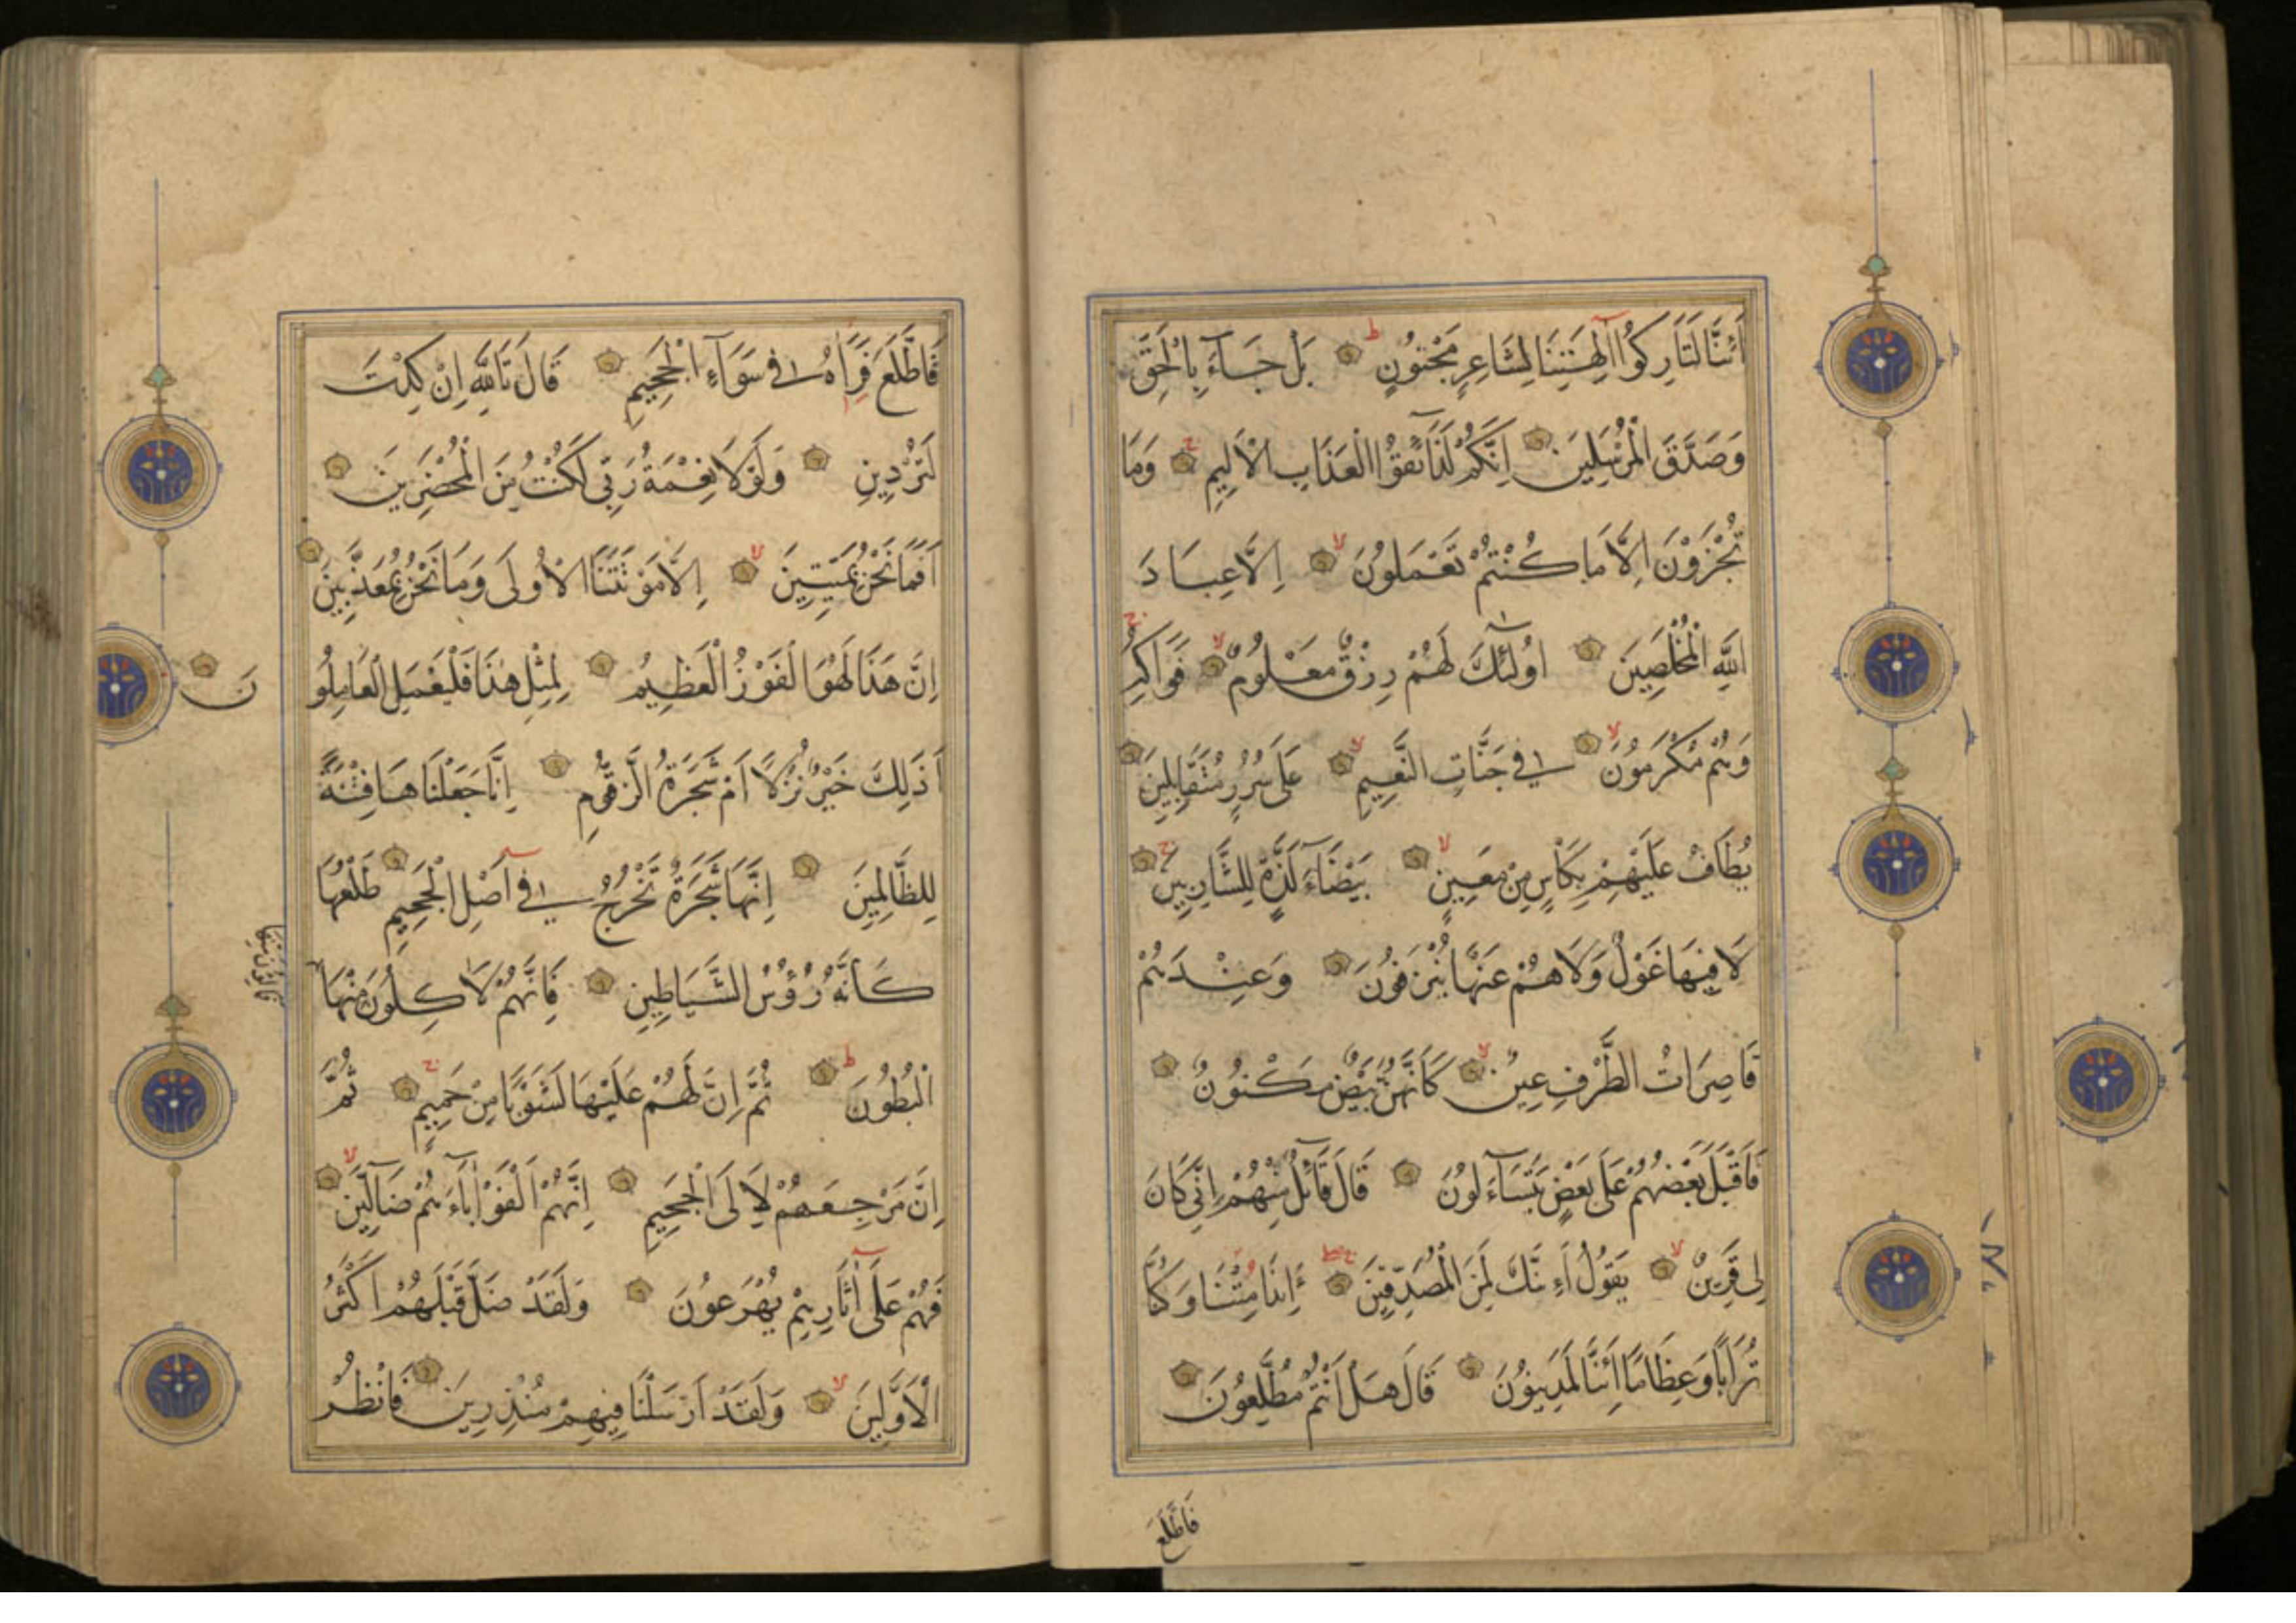 أَئِنَّا لَتَارِكُوا اٰلِهَتِنَا لِشَاعِرٍ مَجْنُونٍ بَلْ جَآءَ بِالْحَقِّ
وَصَدَّقَ الْمُرْسَلِينَ اِنَّكُمْ لَذَآئِقُوا الْعَذَابِ الْاَلِيمِ وَمَا
تُجْزَوْنَ اِلَّا مَا كُنْتُمْ تَعْمَلُونَ اِلَّا عِبَادَ
اللّٰهِ الْمُخْلَصِينَ اُولٰٓئِكَ لَهُمْ رِزْقٌ مَعْلُومٌ فَوَاكِهُ
وَهُمْ مُكْرَمُونَ فِي جَنَّاتِ النَّعِيمِ عَلَى سُرُرٍ مُتَقَابِلِينَ
يُطَافُ عَلَيْهِمْ بِكَأْسٍ مِنْ مَعِينٍ بَيْضَآءَ لَذَّةٍ لِلشَّارِبِينَ
لَا فِيهَا غَوْلٌ وَلَا هُمْ عَنْهَا يُنْزَفُونَ وَعِنْدَهُمْ
قَاصِرَاتُ الطَّرْفِ عِينٌ كَاَنَّهُنَّ بَيْضٌ مَكْنُونٌ
فَاَقْبَلَ بَعْضُهُمْ عَلَى بَعْضٍ يَتَسَآءَلُونَ قَالَ قَآئِلٌ مِنْهُمْ اِنِّي كَانَ
لِي قَرِينٌ يَقُولُ أَءِنَّكَ لَمِنَ الْمُصَدِّقِينَ ءَاِذَا مِتْنَا وَكُنَّا
تُرَابًا وَعِظَامًا أَئِنَّا لَمَدِينُونَ قَالَ هَلْ اَنْتُمْ مُطَّلِعُونَ
فَاطَّلَعَ
فَاطَّلَعَ فَرَاٰهُ فِي سَوَآءِ الْجَحِيمِ قَالَ تَاللّٰهِ اِنْ كِدْتَ
لَتُرْدِينِ وَلَوْلَا نِعْمَةُ رَبِّي لَكُنْتُ مِنَ الْمُحْضَرِينَ
اَفَمَا نَحْنُ بِمَيِّتِينَ اِلَّا مَوْتَتَنَا الْاُولَى وَمَا نَحْنُ بِمُعَذَّبِينَ
اِنَّ هَذَا لَهُوَ الْفَوْزُ الْعَظِيمُ لِمِثْلِ هٰذَا فَلْيَعْمَلِ الْعَامِلُو
نَ
اَذَلِكَ خَيْرٌ نُزُلًا اَمْ شَجَرَةُ الزَّقُّومِ اِنَّا جَعَلْنَاهَا فِتْنَةً
لِلظَّالِمِينَ اِنَّهَا شَجَرَةٌ تَخْرُجُ فِي اَصْلِ الْجَحِيمِ طَلْعُهَا
كَأَنَّهُ رُؤُسُ الشَّيَاطِينِ فَاِنَّهُمْ لَاٰكِلُونَ مِنْهَا
الْبُطُونَ ثُمَّ اِنَّ لَهُمْ عَلَيْهَا لَشَوْبًا مِنْ حَمِيمٍ ثُمَّ
اِنَّ مَرْجِعَهُمْ لَاِلَى الْجَحِيمِ اِنَّهُمْ اَلْفَوْا اٰبَآءَهُمْ ضَآلِّينَ
فَهُمْ عَلَى اٰثَارِهِمْ يُهْرَعُونَ وَلَقَدْ ضَلَّ قَبْلَهُمْ اَكْثَرُ
الْاَوَّلِينَ وَلَقَدْ اَرْسَلْنَا فِيهِمْ مُنْذِرِينَ فَانْظُرْ